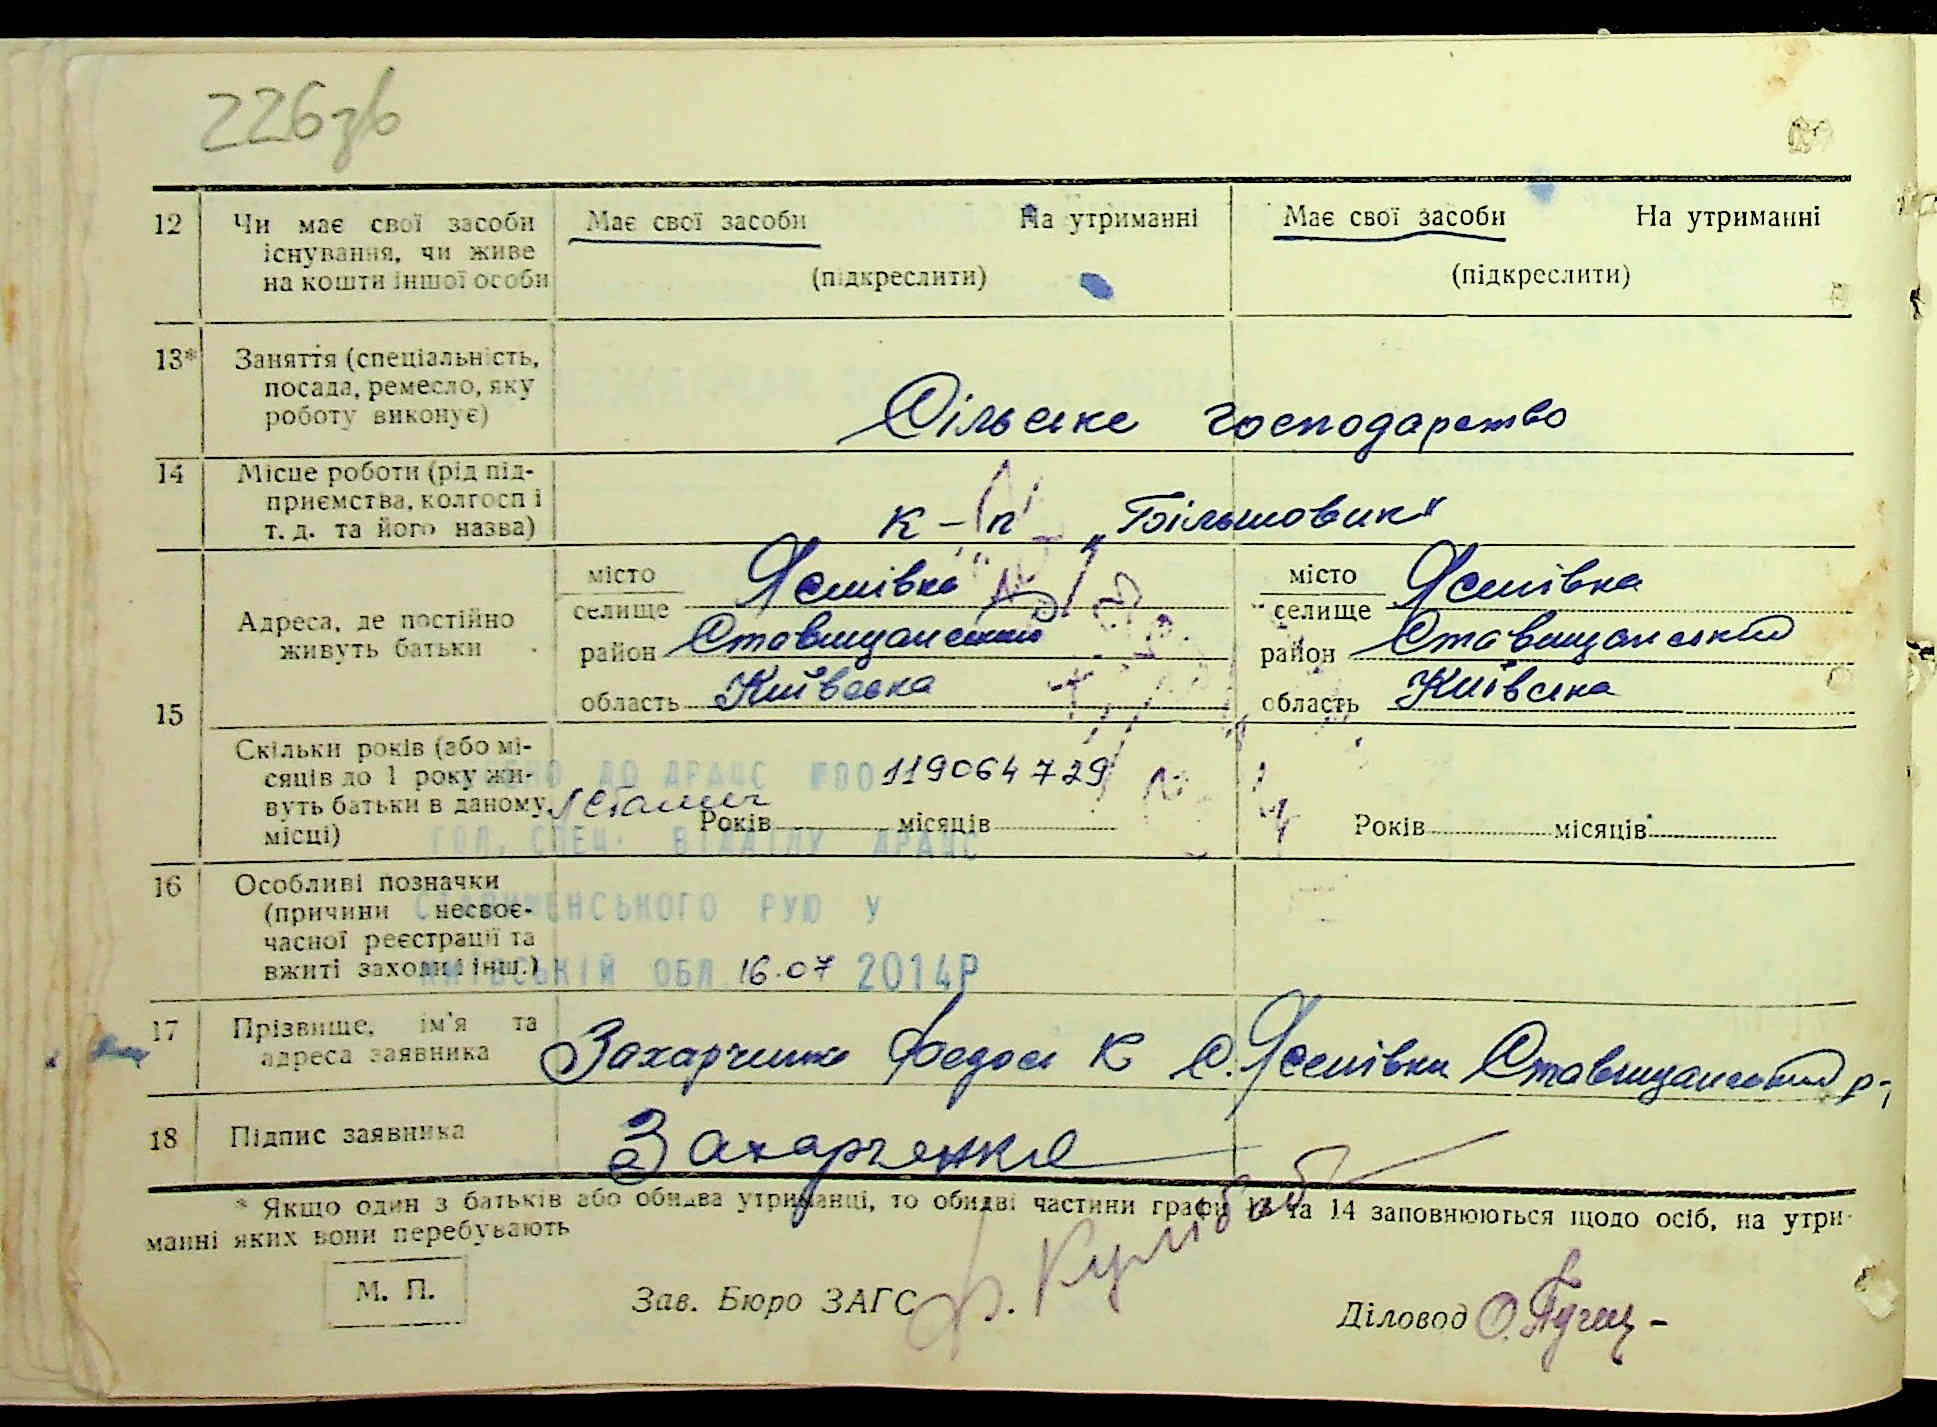 226зв
12 Чи має свої засоби існування, чи живе на кошти іншої особи
Має свої засоби На утриманні Має свої засоби На утриманні
(підкреслити) (підкреслити)
13* Заняття (спеціальність,
посада, ремесло, яку
роботу виконує)
Сільске господарство
14 Місце роботи (рід під-
приємства, колгосп і
т. д. та його назва)
к-п „Більшовик"
15 Адреса, де постійно
живуть батьки
місто
селище Ясенівка
район Ставищанський
область Київська
місто
селище Ясенівка
район Ставищанський
область Київська
Скільки років (або мі-
сяців до 1 року жи-
вуть батьки в даному
місці)
Років місяців
Років місяців
ДО ДРАЦС №00119064729
ГОЛ. СПЕЦ. ВІДДІЛУ ДРАЦС
РУЮ У
ОБЛ 16.07 2014Р
16 Особливі позначки
(причини несвоє-
часної реєстрації та
вжиті заходи і інш.)
17 Прізвище, ім'я та
адреса заявника
Захарченко Федось К с. Ясенівка Ставищанський р-
18 Підпис заявника
Захарченко
* Якщо один з батьків або обидва утриманці, то обидві частини графи 13 та 14 заповнюються щодо осіб, на утри-
манні яких вони перебувають
М. П.
Зав. Бюро ЗАГС
Діловод